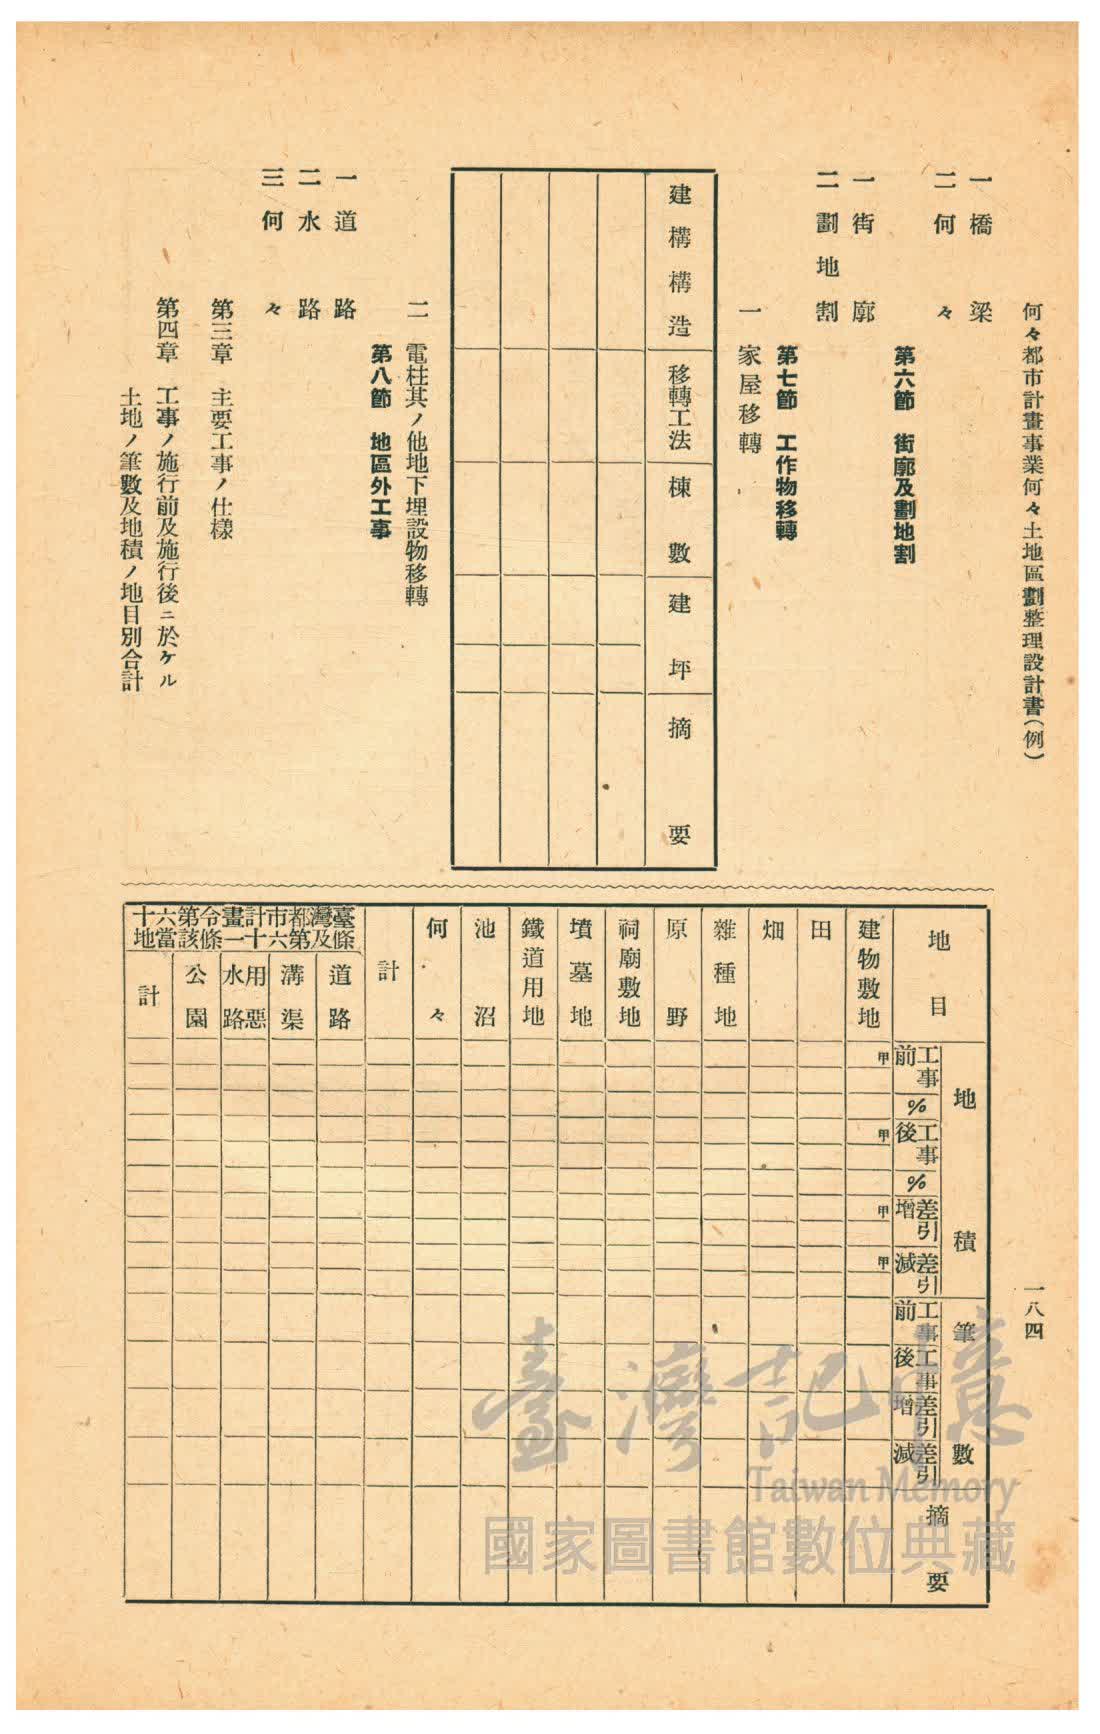 何々都市計畫事業何々土地區劃整理設計書(例)
一八四
一 橋梁
二 何々
第六節 街廓及劃地割
一 街廓
二 劃地割
第七節 工作物移轉
一 家屋移轉
建構構造
移轉工法
棟數
建坪
摘要
二 電柱其ノ他地下埋設物移轉
第八節 地區外工事
一 道路
二 水路
三 何々
第三章 主要工事ノ仕樣
第四章 工事ノ施行前及施行後ニ於ケル
土地ノ筆數及地積ノ地目別合計
地目
地積
工事前
%
工事後
%
差引增
差引減
筆數
工事前
工事後
差引增
差引減
摘要
建物敷地
甲
甲
甲
甲
田
畑
雜種地
原野
祠廟敷地
墳墓地
鐵道用地
池沼
何々
計
臺灣都市計畫令第六十
條及第六十一條該當地
道路
溝渠
用惡
水路
公園
計
臺灣記憶
Taiwan Memory
國家圖書館數位典藏